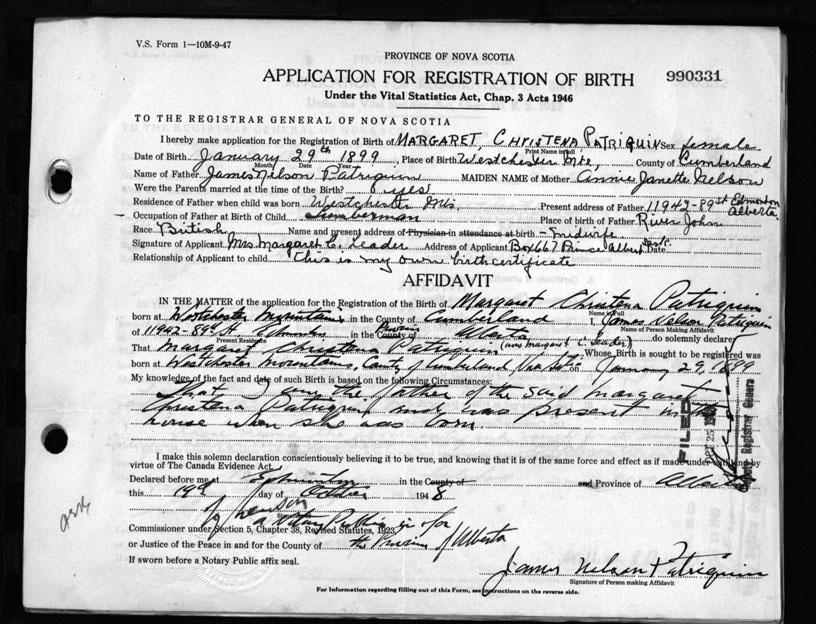 V.S. Form 1—10M-9-47
PROVINCE OF NOVA SCOTIA
APPLICATION FOR REGISTRATION OF BIRTH 990331
Under the Vital Statistics Act, Chap. 3 Acts 1946
TO THE REGISTRAR GENERAL OF NOVA SCOTIA
I hereby make application for the Registration of Birth of MARGARET, CHRISTENA, PATRIQUIN Sex female
Print Name in Full
Date of Birth January 29th 1899, Place of Birth Westchester Mte County of Cumberland
Month Date Year
Name of Father James Nelson Patriquin MAIDEN NAME of Mother Annie Janette Nelson
Were the Parents married at the time of Birth? yes
Residence of Father when child was born Westchester Mts. Present address of Father 11942-89 st Edmonton Alberta.
Occupation of Father at Birth of Child Lumberman Place of birth of Father River John
Race British Name and present address of Physician in attendance at birth - midwife
Signature of Applicant Mrs. Margaret C. Leader Address of Applicant Box 667 Prince Albert Sask. Date
Relationship of Applicant to child this is my own birth certificate
AFFIDAVIT
IN THE MATTER of the application for the Registration of the Birth of Margaret Christena Patriquin
Name in Full
born at Westchester Mountains in the County of Cumberland I, James Nelson Patriquin
Name of Person Making Affidavit
of 11942-89 St. Edmonton in the County of Province Alberta do solemnly declare
Present Residence
That Margaret Christena Patriquin (now Margaret C. Leader) Whose Birth is sought to be registered was
born at Westchester Mountains, County of Cumberland on January 29, 1899
My knowledge of the fact and date of such Birth is based on the following Circumstances:
That I am the father of the said Margaret
Christena Patriquin and was present in the
house when she was born.
I make this solemn declaration conscientiously believing it to be true, and knowing that it is of the same force and effect as if made under by
virtue of The Canada Evidence Act.
Declared before me at Edmonton in the County of and Province of Alberta
this 19th day of October 1948
a Notary Public in & for
Commissioner under Section 5, Chapter 38, Revised Statutes, 1923
or Justice of the Peace in and for the County of the Province of Alberta
If sworn before a Notary Public affix seal.
James Nelson Patriquin
Signature of Person making Affidavit
For Information regarding filling out of this Form, see instructions on the reverse side.
FILED
OCT 25
Registrar General